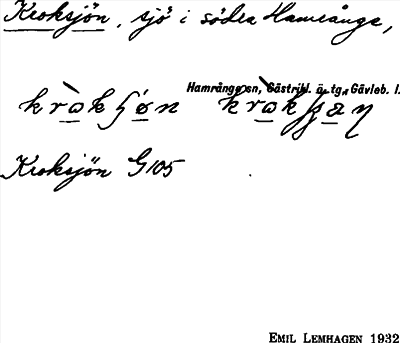 Kroksjön, sjö i södra Hamrånge,
Hamrånge sn, Gästrikl. ö. tg, Gävleb. l.
Kroksjön G105
EMIL LEMHAGEN 1932